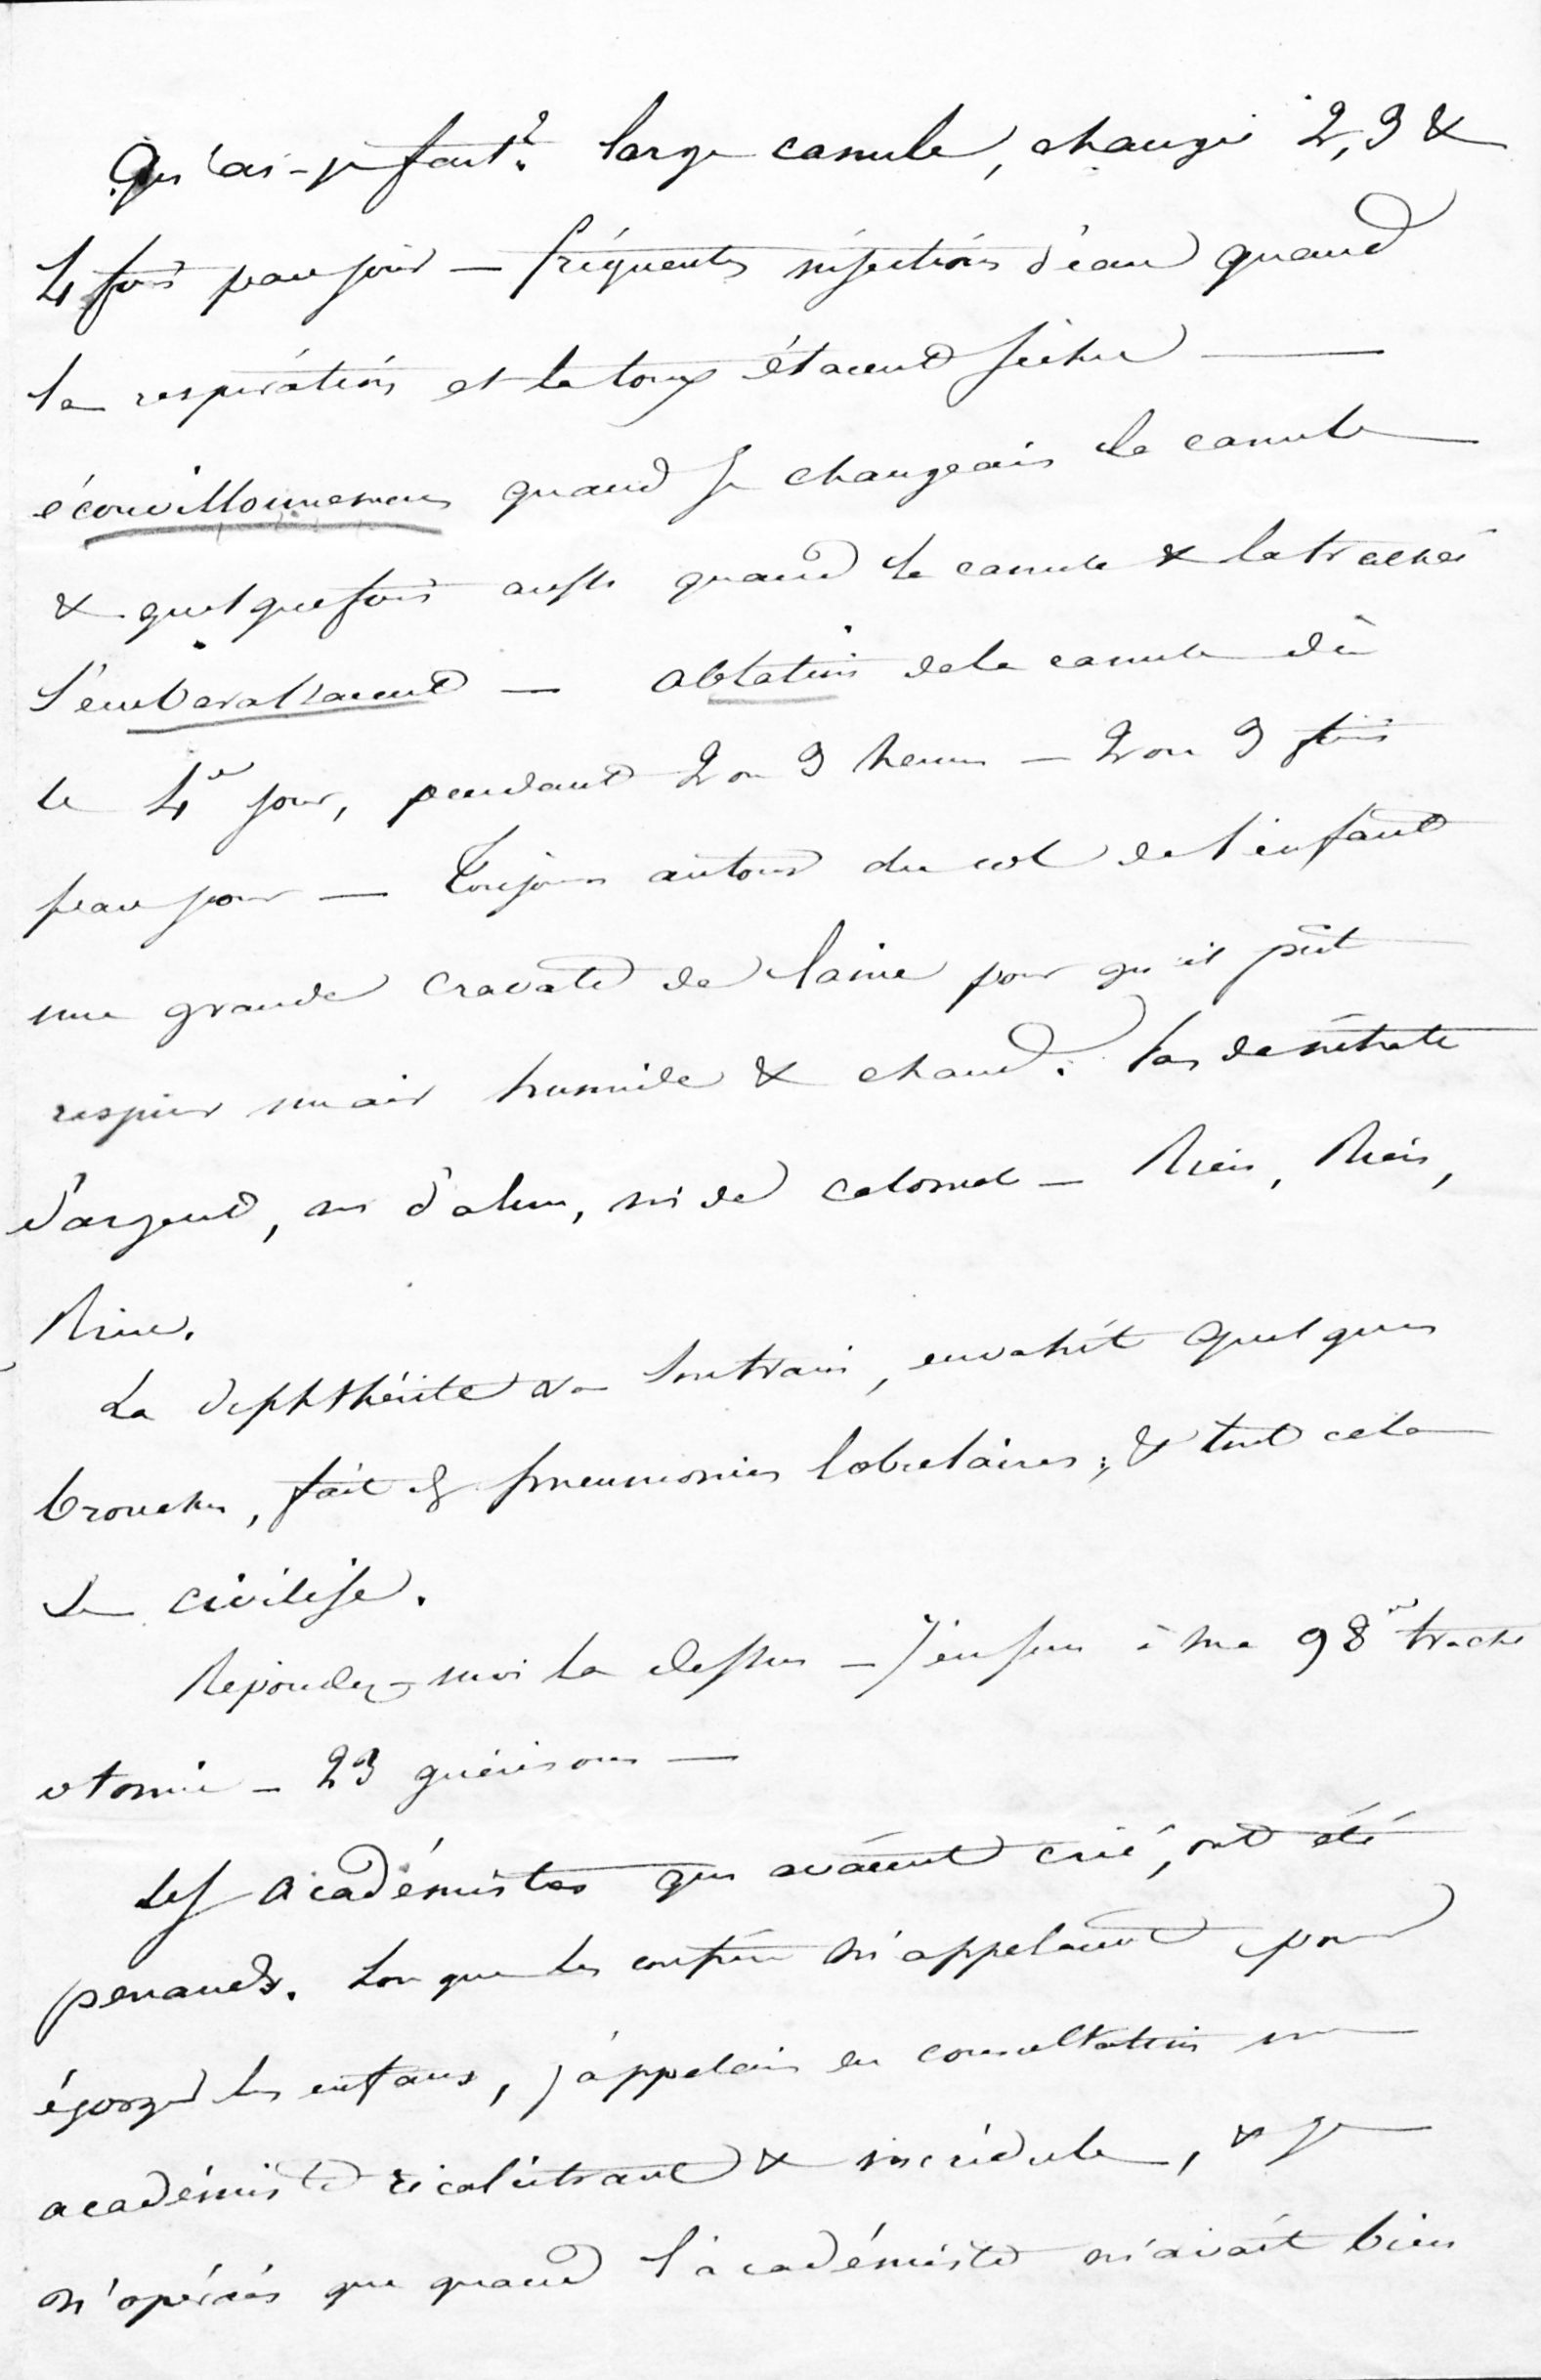 Qu'ai-je fait? large canule, changée 2, 3 &
4 fois par jour — fréquentes injections d'eau quand
la respiration et la toux étaient sèches —
écouvillonnemens quand je changeais la canule
& quelquefois aussi quand la canule & la trachée
s'embarassaient — ablation de la canule dès
le 4e jour, pendant 2 ou 3 heures — 2 ou 3 fois
par jour — Toujours autour du col de l'enfant
une grande cravate de laine pour qu'il pût
respirer un air humide & chaud. Pas de nitrate
d'argent, ni d'alun, ni de calomel — Rien, Rien,
Rien.
La diphthérite va son train, envahit quelques
bronches, fait des pneumonies lobulaires; & tout cela
se civilise.
Répondez-moi la dessus — J'en suis à ma 98e trache
otomie — 23 guérisons —
Les académistes qui avaient crié, ont été
penauds. Lorsque les confrères m'appelaient pour
égorger les enfans, j'appelais en consultation un
académiste récalcitrant & incrédule, & je
n'opérais que quand l'académiste m'avait bien